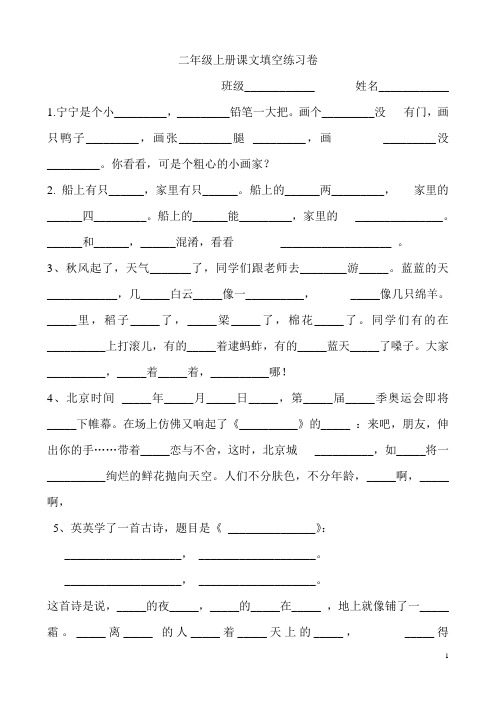 二年级上册课文填空练习卷
班级____________ 姓名____________
1.宁宁是个小_________，_________铅笔一大把。画个_________没 有门，画
只鸭子_________，画张_________腿 _________，画 _________没
_________。你看看，可是个粗心的小画家？
2. 船上有只______，家里有只______。船上的______两_________， 家里的
______四_________。船上的______能_________，家里的 _______________。
______和______，______混淆，看看 ___________________ 。
3、秋风起了，天气_______了，同学们跟老师去________游_____。蓝蓝的天
____________，几_____白云_____像一__________， _____像几只绵羊。
_____里，稻子_____了，_____梁_____了，棉花_____了。同学们有的在
__________上打滚儿，有的_____着逮蚂蚱，有的_____蓝天_____了嗓子。大家
__________，_____着_____着，__________哪！
4、北京时间 _____年_____月_____日_____，第_____届_____季奥运会即将
_____下帷幕。在场上仿佛又响起了《__________》的_____ ：来吧，朋友，伸
出你的手……带着_____恋与不舍，这时，北京城 __________，如_____将一
__________绚烂的鲜花抛向天空。人们不分肤色，不分年龄，_____啊，_____
啊，
5、英英学了一首古诗，题目是《 _______________》：
____________________， ____________________。
____________________， ____________________。
这首诗是说，_____的夜_____，_____的_____在_____ ，地上就像铺了一_____
霜。_____离_____ 的人_____着_____天上的_____， _____得
1